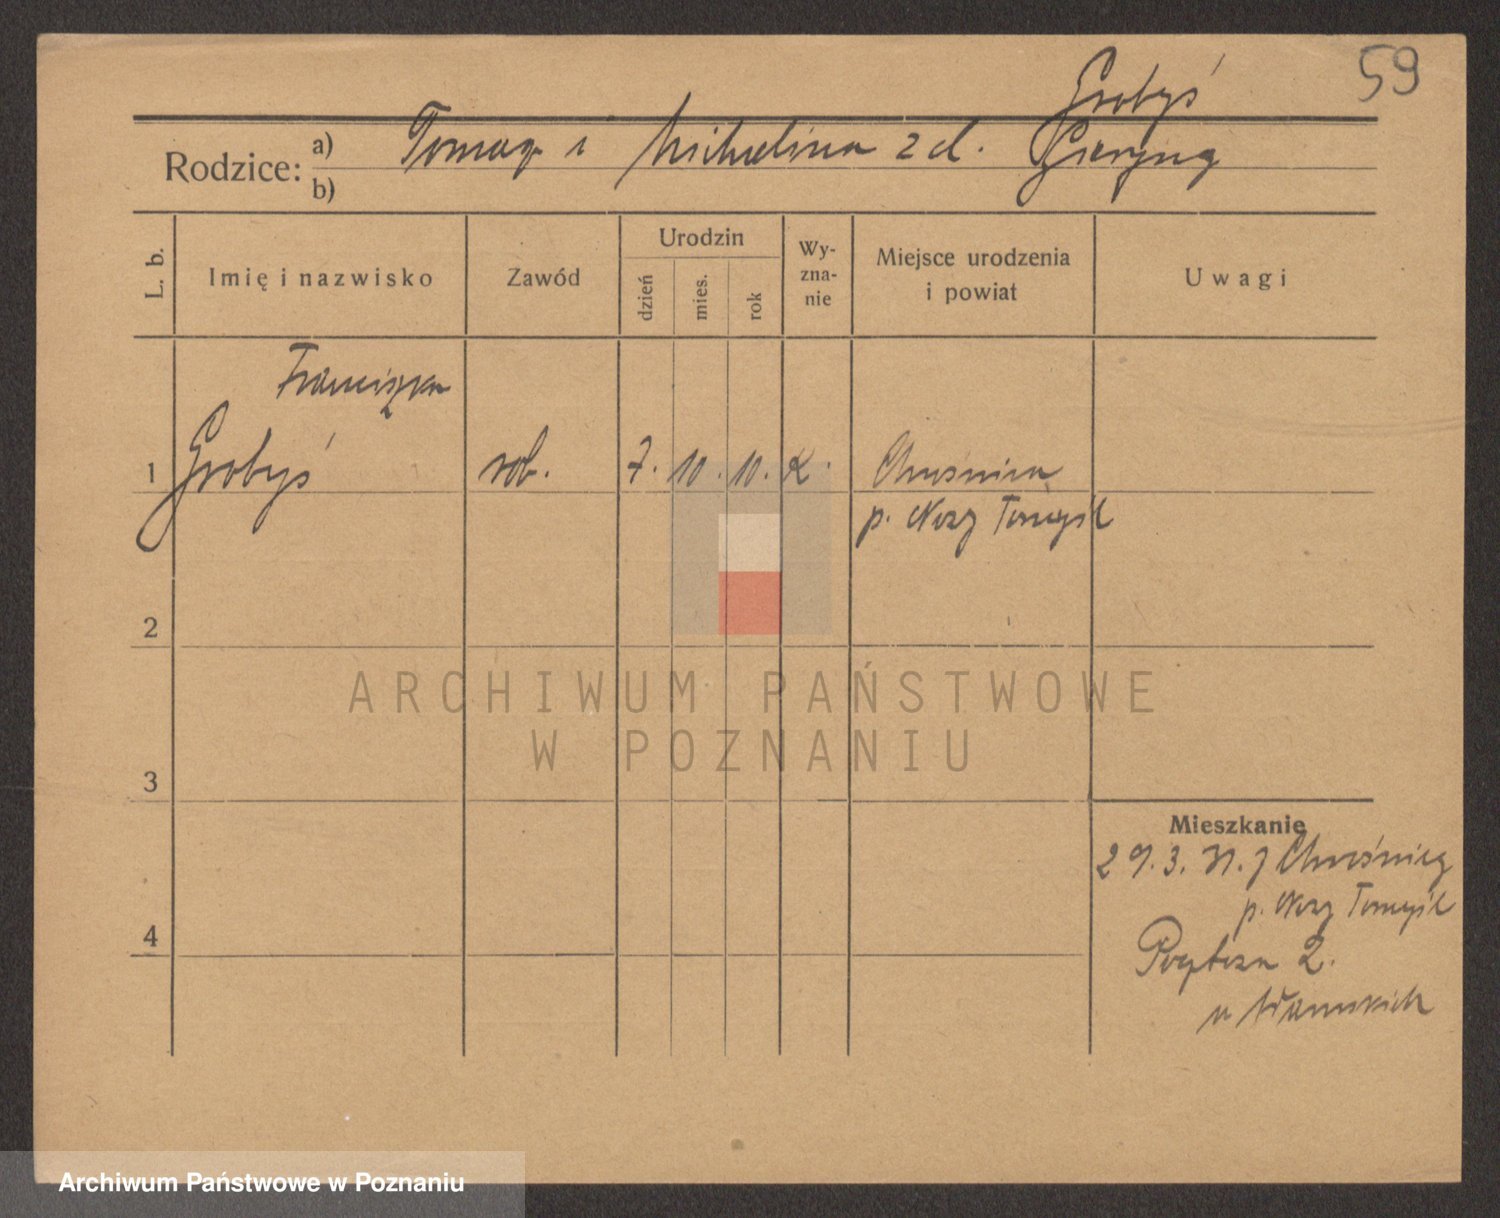 59
Grobyś
Rodzice: a) Tomasz i Michalina z d.
b)
L. b.
Imię i nazwisko
Zawód
Urodzin
dzień
mies.
rok
Wy-
zna-
nie
Miejsce urodzenia
i powiat
Uwagi
Franciszka
1 Grobyś rob. 7. 10. 10. K. Chrośnica
p. Nowy Tomyśl
2
ARCHIWUM PAŃSTWOWE
W POZNANIU
3
Mieszkanie
29.3.31. z Chrośnicy
p. Nowy Tomyśl
4
2.
u
Archiwum Państwowe w Poznaniu